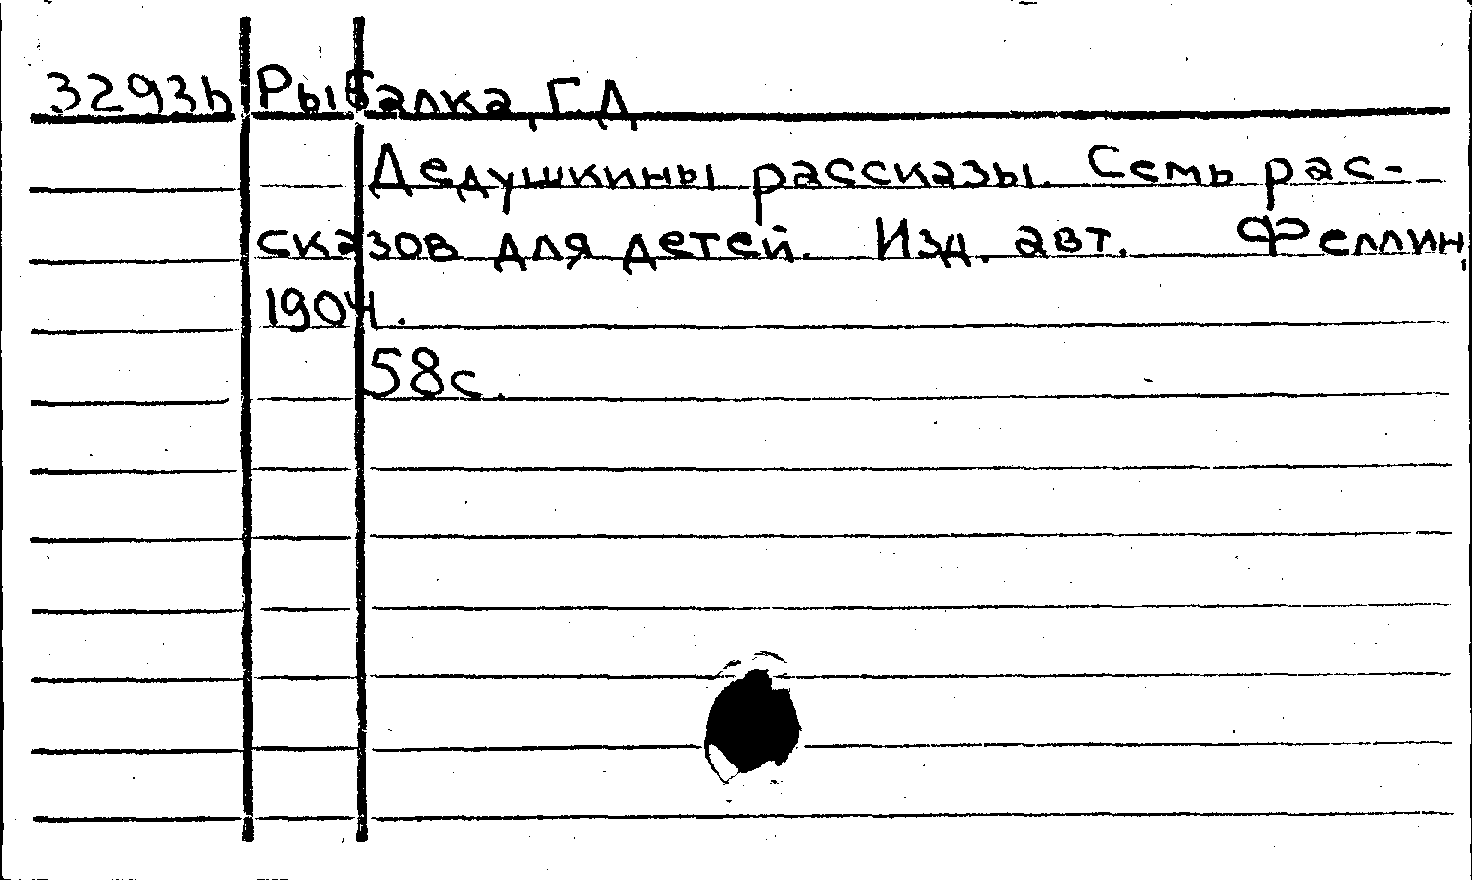 3293b Рыбалка, Г.Д
Дедушкины рассказы. Семь рас-
сказов для детей. Изд. авт. Феллин,
1904.
58с.